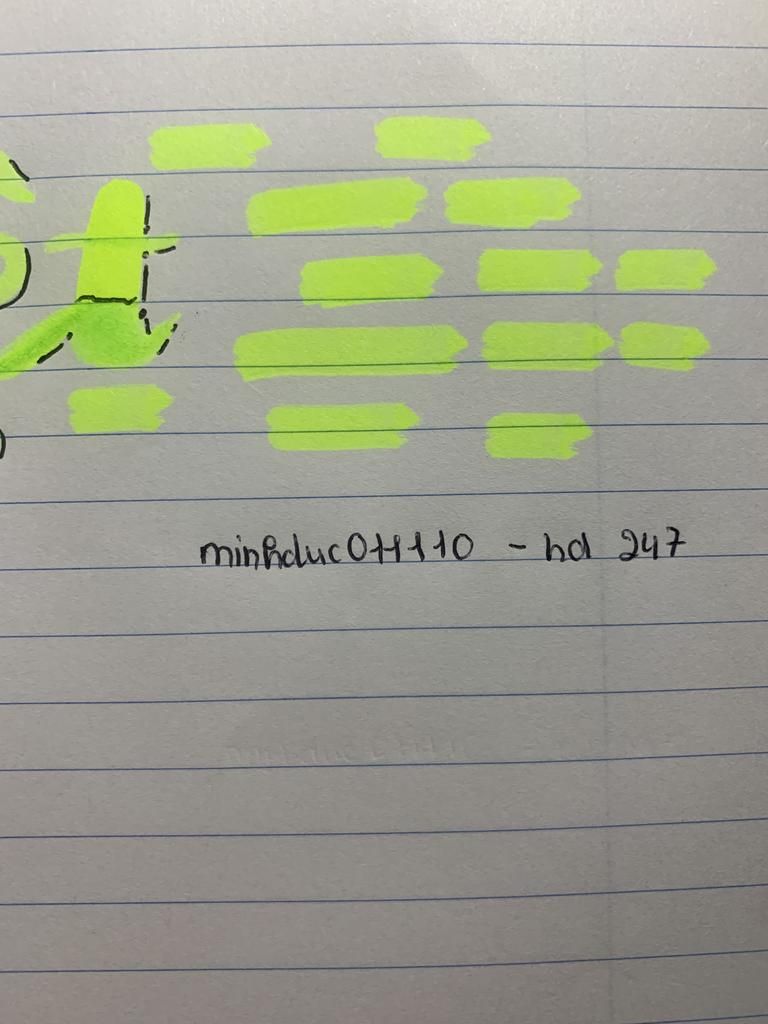 t
minhduc011110 - hd 247